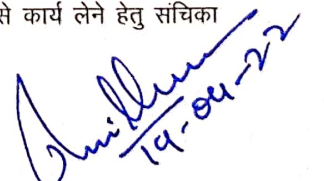 से कार्य लेने हेतु संचिका
19-04-22